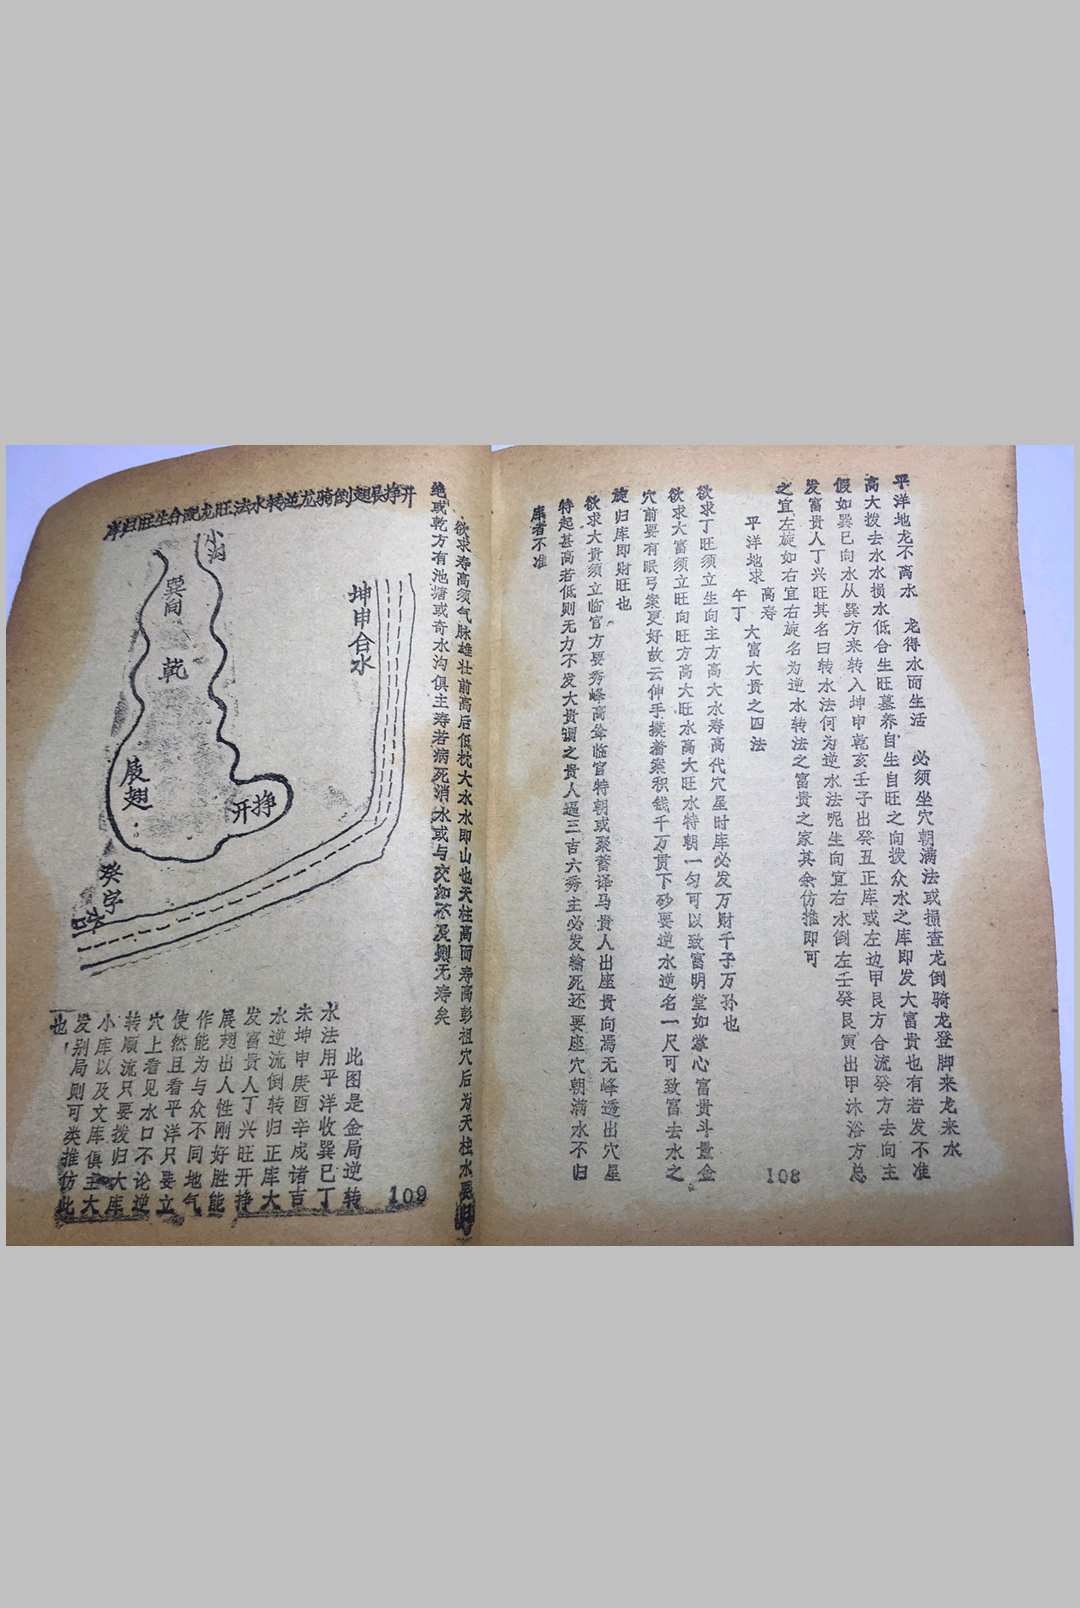 平洋地龙不离水　龙得水而生活　必须坐穴朝满法或损查龙倒骑龙登脚来龙来水
高大拨去水水损水低合生旺墓养自生自旺之向拨众水之库即发大富贵也有若发不准
假如巽巳向水从巽方来转入坤申乾亥壬子出癸丑正库或左边甲艮方合流癸方去向主
发富贵人丁兴旺其名曰转水法何为逆水法呢生向宜右水倒左壬癸艮寅出甲沐浴方总
之宜左旋如右宜右旋名为逆水转法之富贵之家其余仿推即可
平洋地求　高寿午丁　大富大贵之四法
欲求丁旺须立生向主方高大水寿高代穴星时库必发万财千子万孙也
欲求大富须立旺向旺方高大旺水高大旺水特朝一勺可以致富明堂如掌心富贵斗量金
穴前要有眠弓案更好故云伸手摸着案积钱千万贯下砂要逆水逆名一尺可致富去水之
旋归库即财旺也
欲求大贵须立临官方要秀峰高耸临官特朝或聚蓄译马贵人出座贵向焉无峰透出穴星
特起甚高若低则无力不发大贵谓之贵人逼三吉六秀主必发输死还要座穴朝满水不归
库者不准
108
欲求寿高须气脉雄壮前高后低枕大水水即山也天柱高而寿高彭祖穴后为天柱水要
绝或乾方有池塘或奇水沟俱主寿若病死消水或与交如不及则无寿矣
开挣展翅倒骑龙逆转水法旺龙配合生旺归库
小沟
巽向
乾
坤申合水
展翅
开挣
癸字
此图是金局逆转
水法用平洋收巽巳丁
未坤申庚酉辛戍诸吉
水逆流倒转归正库大
发富贵人丁兴旺开挣
展翅出人性刚好胜能
作能为与众不同地气
使然且看平洋只要立
穴上看见水口不论逆
转顺流只要拨归大库
小库以及文库俱主大
发别局则可类推仿此
也
109